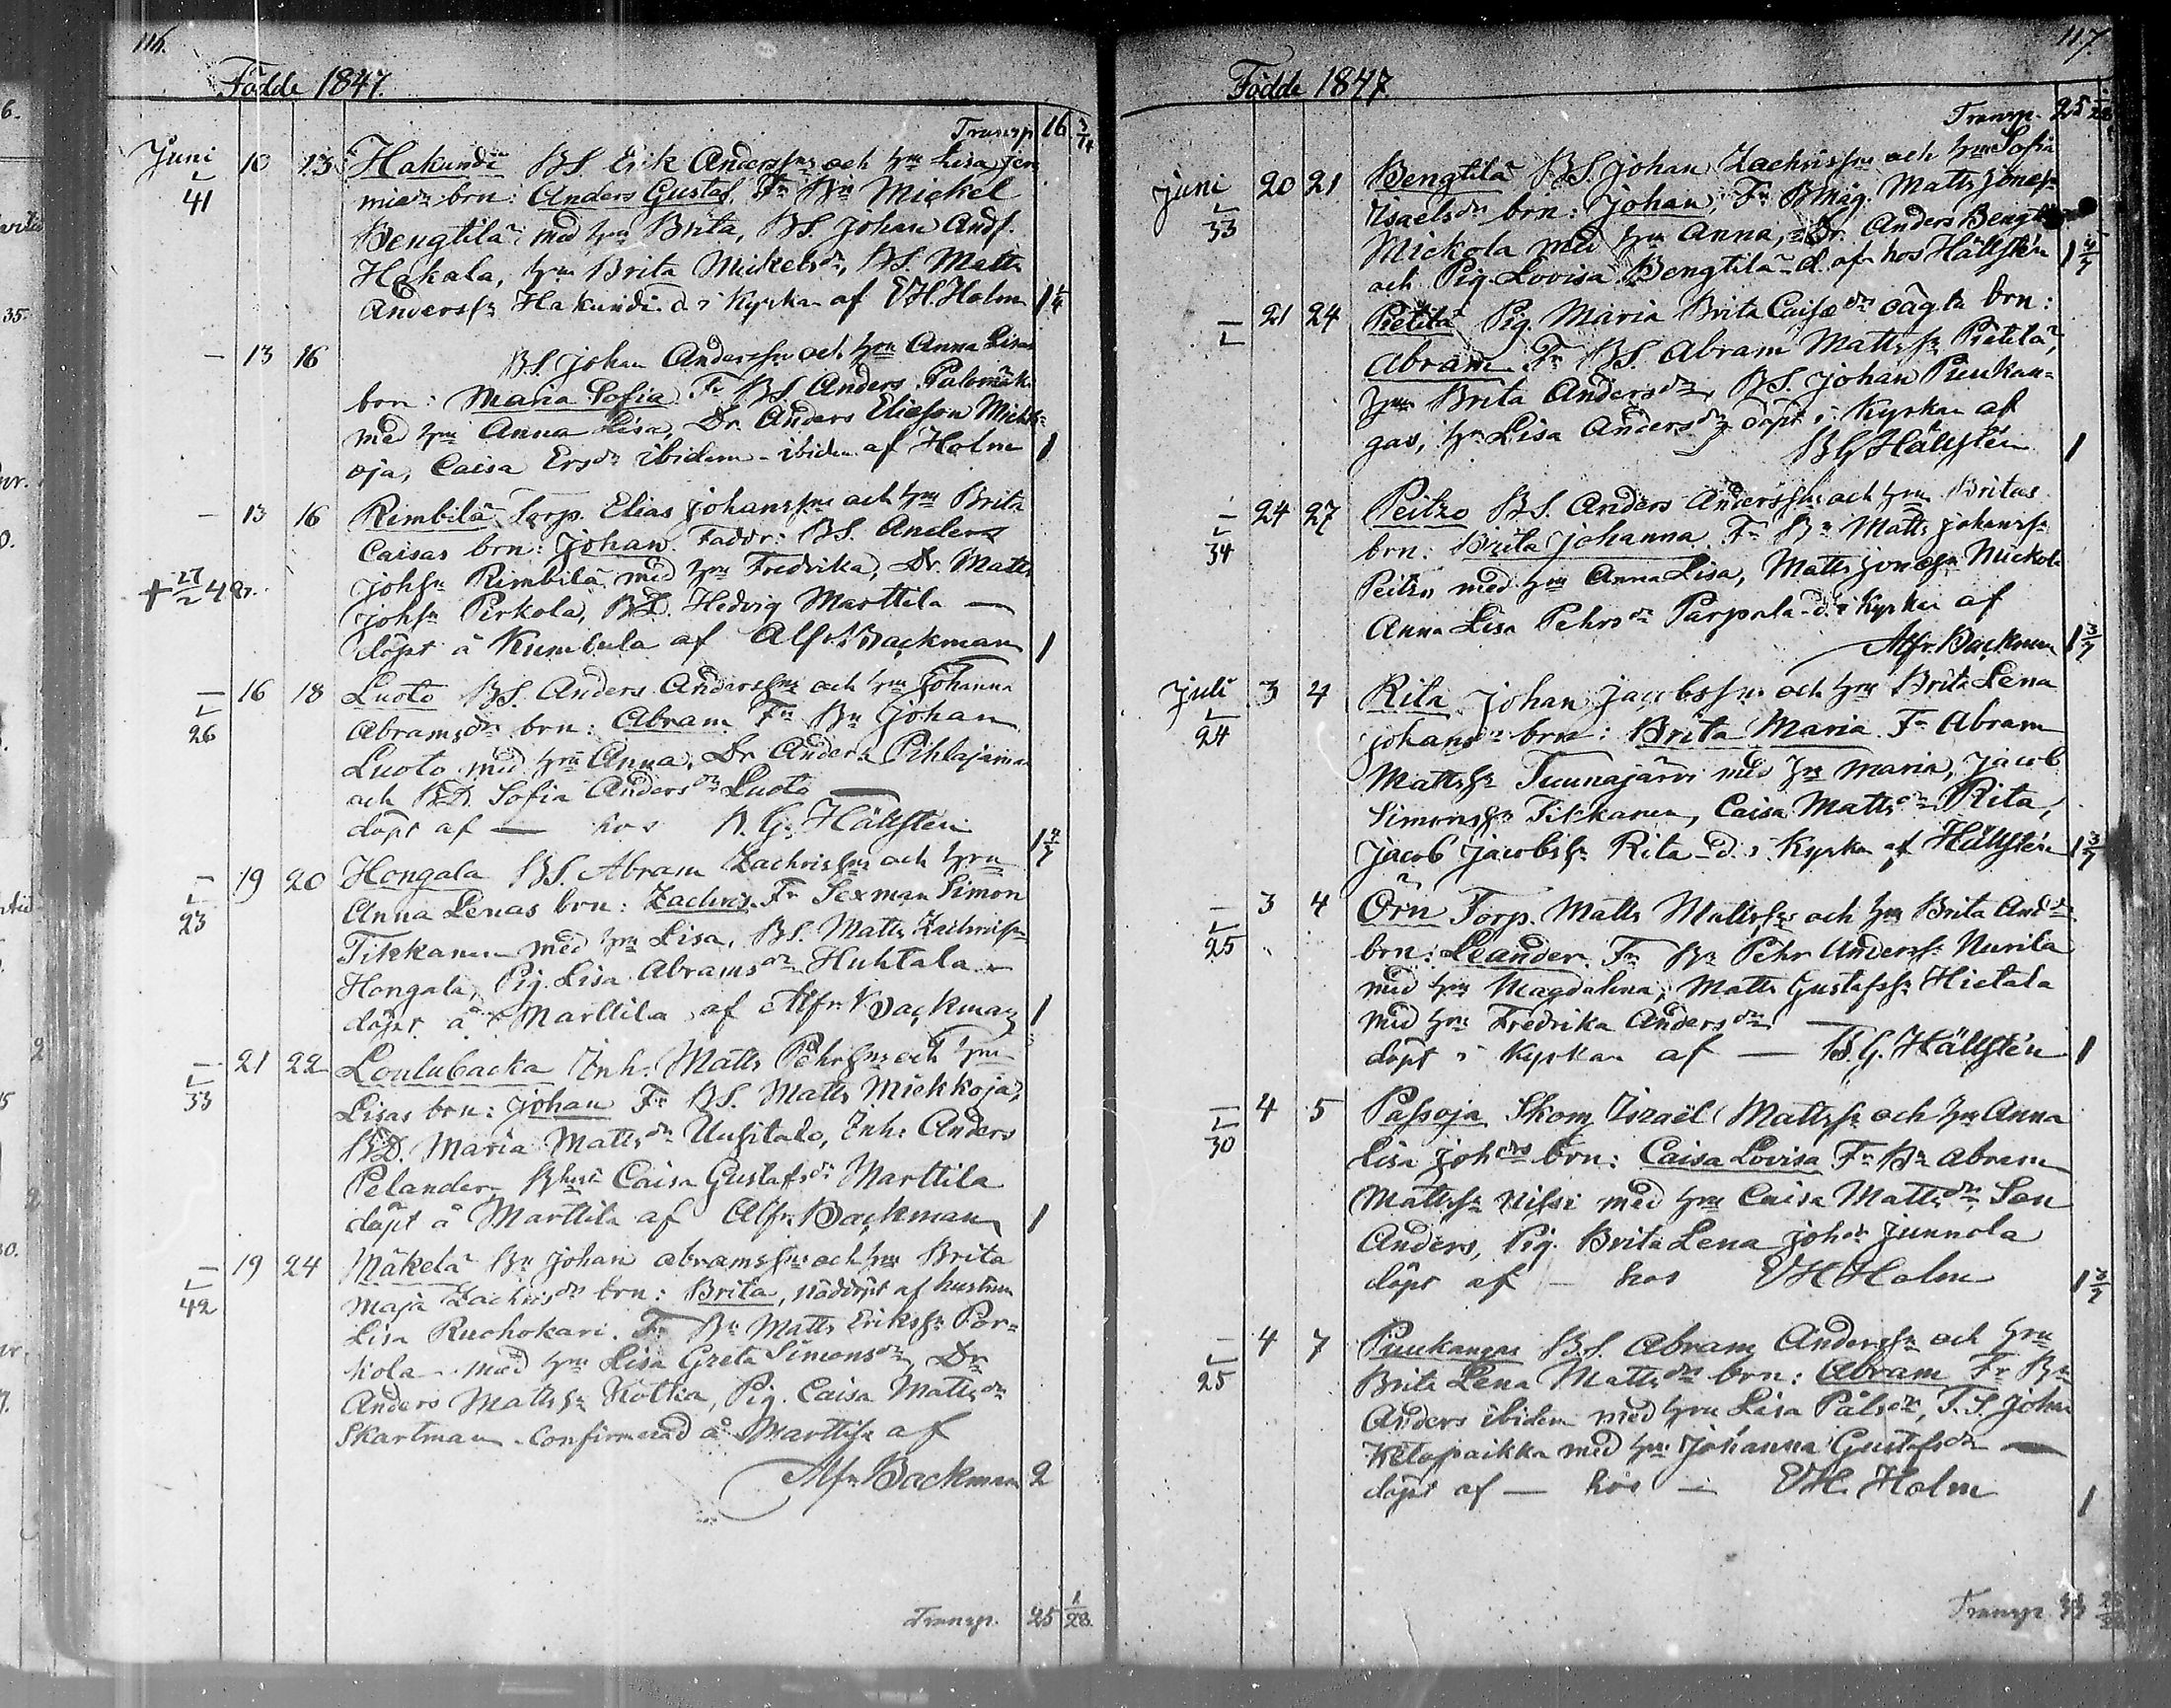 116.
Födde 1847.
Transp. 16 3/14
Juni 10 13 Hakundi BS. Erik Anderss. och hru Lisa Jere
41 miæd. brn: Anders Gustaf. Fr Bn Mickel
Bengtilä med hru Brita, BS. Johan Ands.
Hakala, hru Brita Mickelsdr, BS. Matts
Anderss. Hakundi d. i Kyrkan af EH. Holm
— 13 16 BS. Johan Andersson och hru Anna Lisas
brn: Maria Sofia Fr BS. Anders Palomäki
med hru Anna Lisa, Dr. Anders Eliasson
oja, Caisa Ersdr ibidem - ibidem af Holm 1
— 13 16 Rimbilä Torp. Elias Johanss. och hru Brita
Caisas brn: Johan. Faddr: BS. Anders
+ 27/2 48. Johss. Rimbilä med hru Fredrika, Dr. Matts
Johss. Pirkola, BD. Hedvig Marttila —
döpt å Kumbula af Alfr. Backman 1
— 16 18 Luoto BS. Anders Anderss. och hru Johanna
26 Abramsdr brn: Abram Fr Bn Johan
Luoto med hru Anna, Dr Anders Pihlajama
och BD. Sofia Andersdr Luoto —
döpt af — hos B. G. Hällsten 1 2/7
— 19 20 Hongala BS. Abram Zachriss. och hru
23 Anna Lenas brn: Zachris. Fr Sexman Simon
Tikkanen med hru Lisa, BS. Matts Zachriss.
Hongala, Pig. Lisa Abramsdr Huhtala —
döpt å Marttila af Alfr. Backman 1
— 21 22 Loulubacka Inh. Matts Pehrss. och hru
33 Lisas brn: Johan Fr BS. Matts Mickkoja,
BD. Maria Mattsdr Uusitalo, Inh. Anders
Pelander, Caisa Gustafsdr Marttila
döpt å Marttila af Alfr. Backman 1
— 19 24 Mäkelä Bn Johan Abramss. och hru Brita
42 Maja Zachrisdr brn: Brita, nöddöpt af hustrun
Lisa Ruohokari. Fr Bn Matts Erikss. Por=
kola med hru Lisa Greta Simonsdr, Dr
Anders Mattss. Kotka, Pig. Caisa Mattsdr
Skartman. Confirmerad å Marttila af
Alfr. Backman 2
Transp. 25 1/28
117.
Födde 1847.
Transp. 25
Juni 20 21 Bengtilä BS. Johan Zachriss. och hru Sofia
33 Isaelsdr brn: Johan, Fr Bmåg. Matts Jonæss.
Mickola med hru Anna, Dr. Anders
och Pig Lovisa Bengtilä - d. af hos Hällstén
— 21 24 Pietilä Pig. Maria Brita Caisædr oägta brn:
Abram Fr BS. Abram Mattss. Pietilä,
hru Brita Andersdr, BS. Johan Puukan=
gas, hr Lisa Andersdr, döpt i Kyrkan af
BG Hällstén 1
— 24 27 Peitzo BS. Anders Anderss. och hru Britas
34 brn: Brita Johanna Fr Bn Matts Johanss.
Peitzo med hru Anna Lisa, Matts Jonæss. Mickola
Anna Lisa Pehrsdr Parpala - d. i Kyrkan af
Alfr. Backman 1 3/7
Juli 3 4 Rita Johan Jacobss. och hru Brita Lena
24 Johansdr brn: Brita Maria Fr Abram
Mattss. Tuunajärvi med hru Maria, Jacob
Simonss. Tikkanen, Caisa Mattsdr Rita,
Jacob Jacobss. Rita - d. i Kyrkan af Hällstén 1 3/7
— 3 4 Örn Torp. Matts Mattss. och hru Brita Andsdr
25 brn: Leander. Fr Bn Pehr Anderss. Nurila
med hru Magdalena, Matts Gustafss. Hietala
med hru Fredrika Andersdr —
döpt i Kyrkan af — B. G. Hällstén 1
— 4 5 Passoja Skom. Israël Mattss. och hru Anna
30 Lisa Johdrs brn: Caisa Lovisa Fr Bn Abram
Mattss. Nissi med hru Caisa Mattsdr, Son
Anders, Pig. Brita Lena Johdr Junnola
döpt af — hos EH Holm
— 4 7 Puukangas BS. Abram Anderss. och hru
25 Brita Lena Mattsdr brn: Abram Fr Bn
Anders ibidem med hru Lisa Pålsdr, T.S. Johan
Ketopaikka med hru Johanna Gustafsdr —
döpt af — hos — EH. Holm 1
Transp.